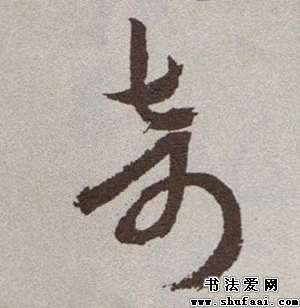 奇
书法爱网
www.shufaai.com